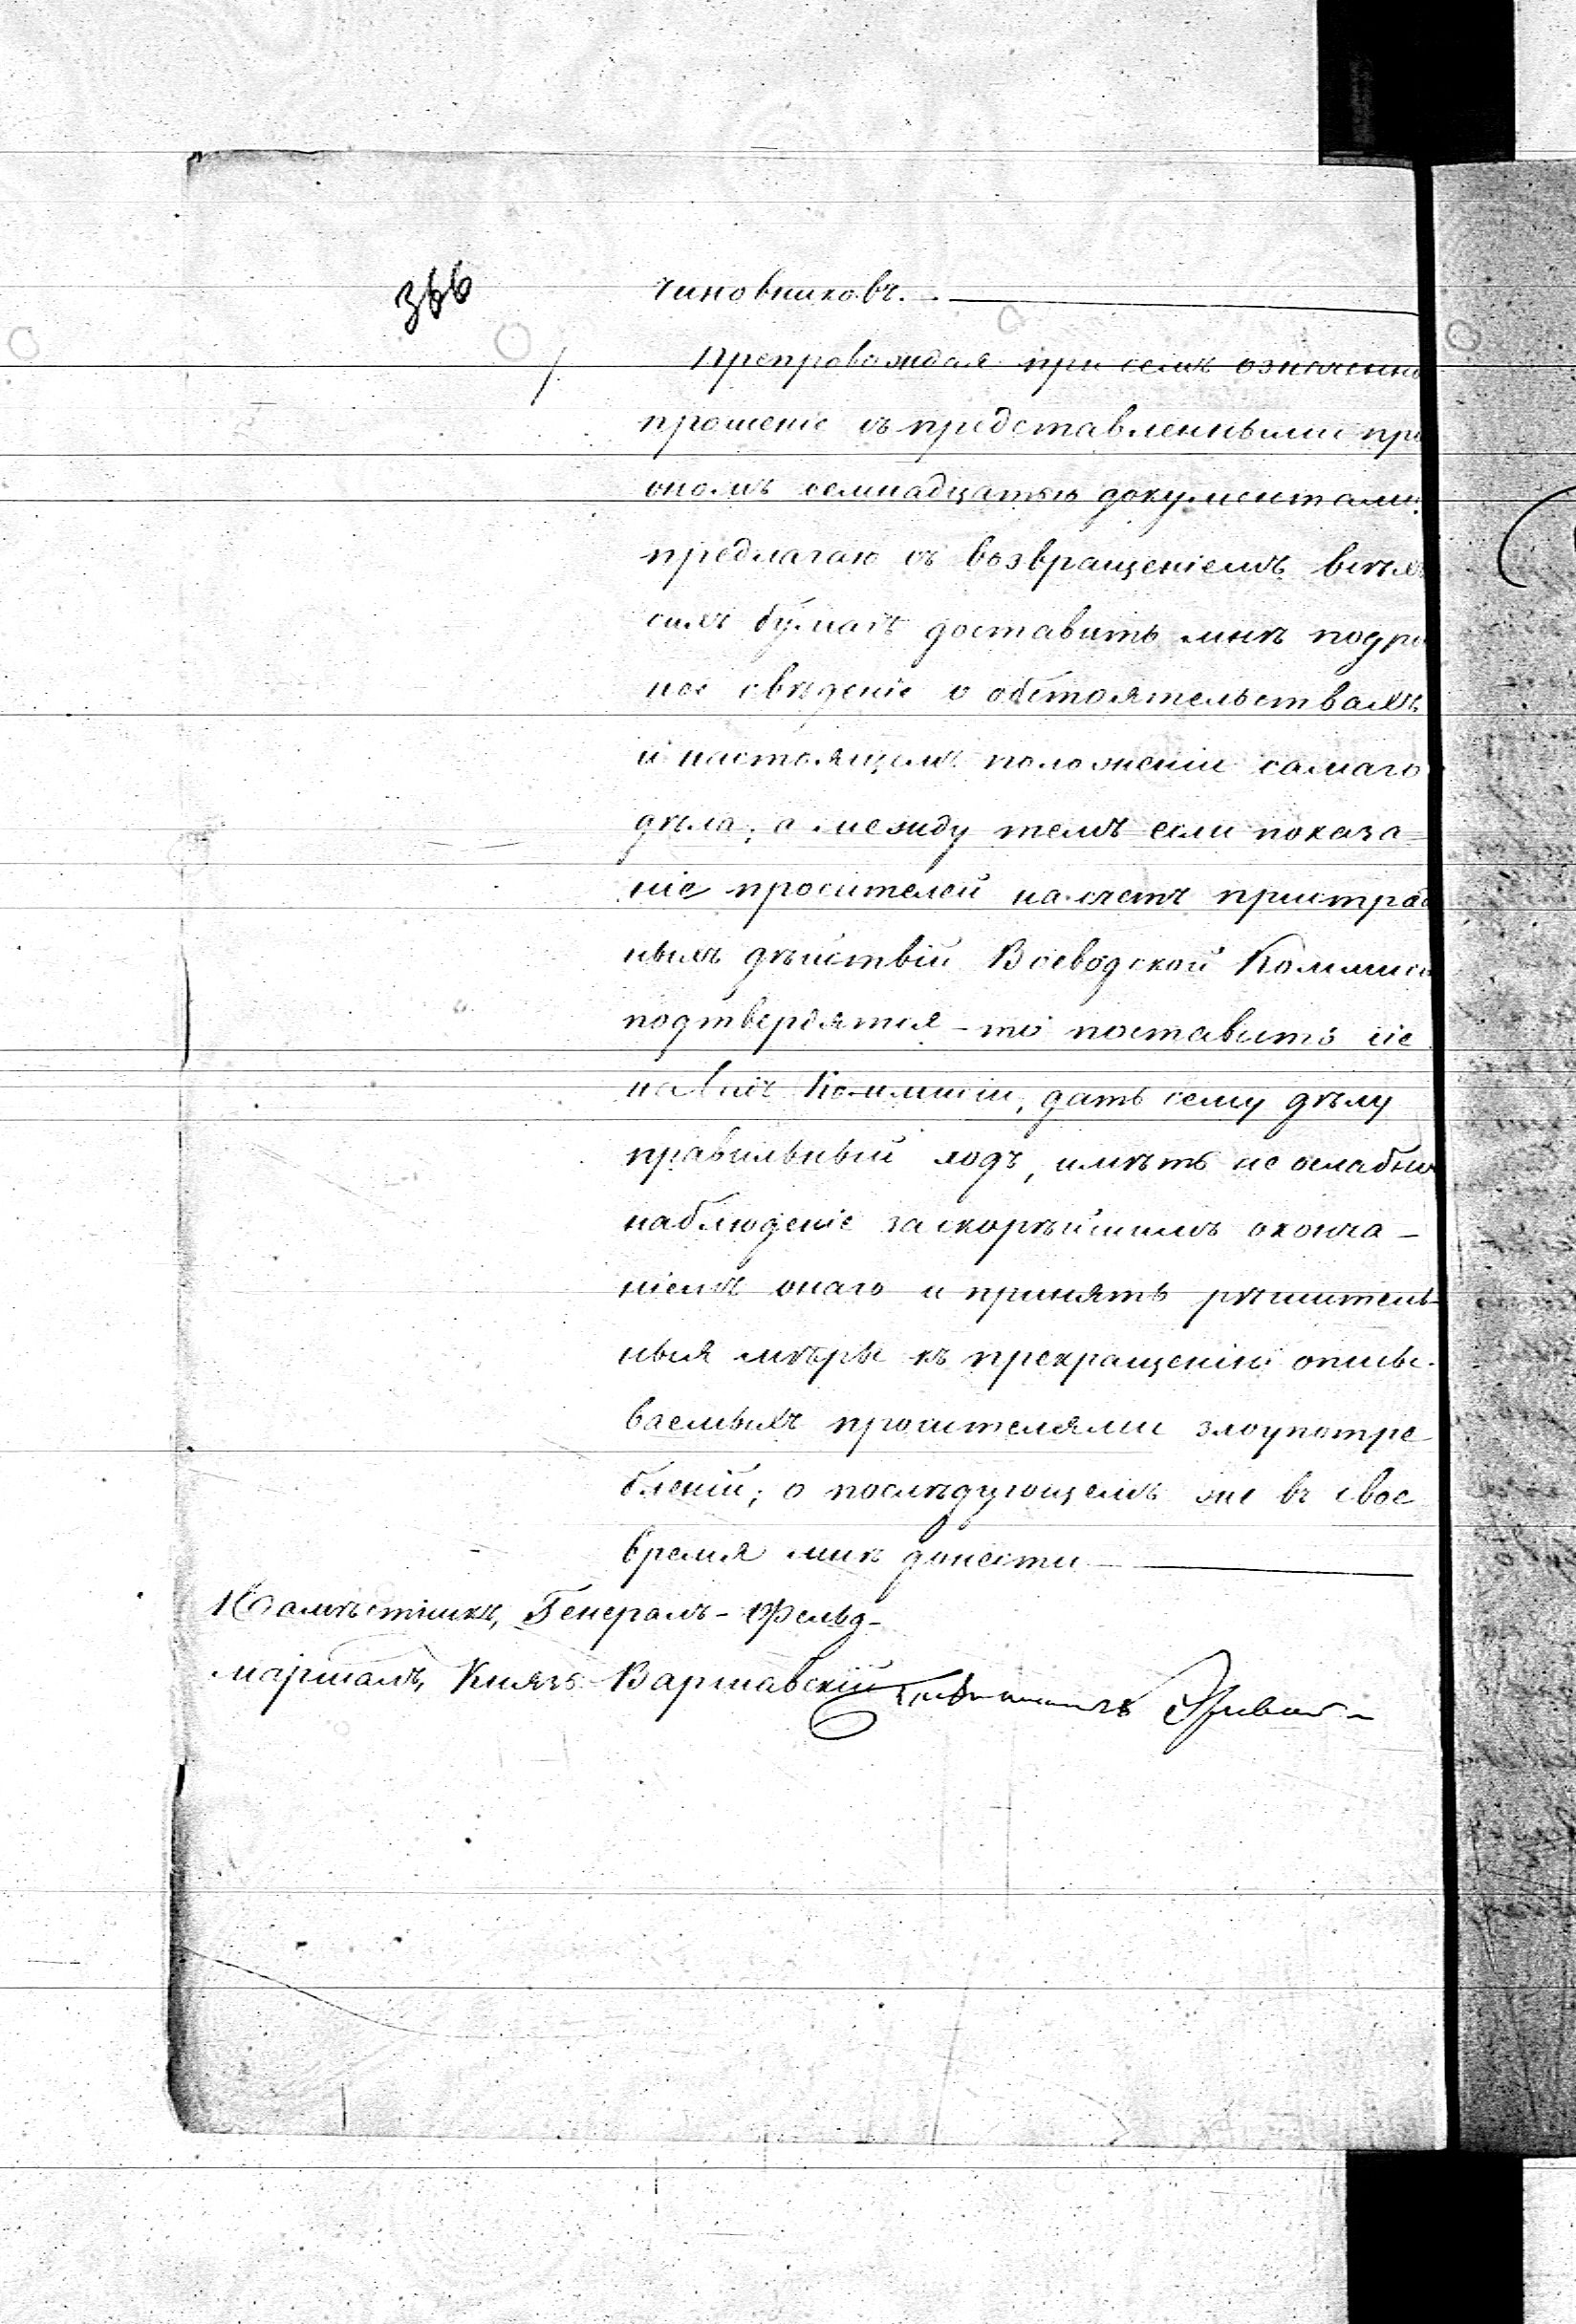 366
чиновниковъ.
Препровождая при семъ означенно
прошеніе съ представленными при
ономъ семнадцатью документами,
предлагаю съ возвращеніемъ всѣхъ
сихъ бумагъ доставить мнѣ подро
ное свѣденіе о обстоятельствахъ
и настоящемъ положеніи самаго
дѣла; а между темъ если показа=
ніе просителей на счетъ пристра
ныхъ дѣйствій Воеводской Коммисі
подтвердятся - то поставить сіе
на видъ Коммисіи, дать сему дѣлу
правильный ходъ, имѣть не ослабно
наблюденіе за скорѣйшимъ оконча-
ніемъ онаго и принять рѣшитель-
ныя мѣры къ прекращенію описы-
ваемыхъ просителями злоупотре
бленій; о послѣдующемъ же въ свое
время мнѣ донести
Намѣстникъ, Генералъ-Фельд-
маршалъ, Князь Варшавскій